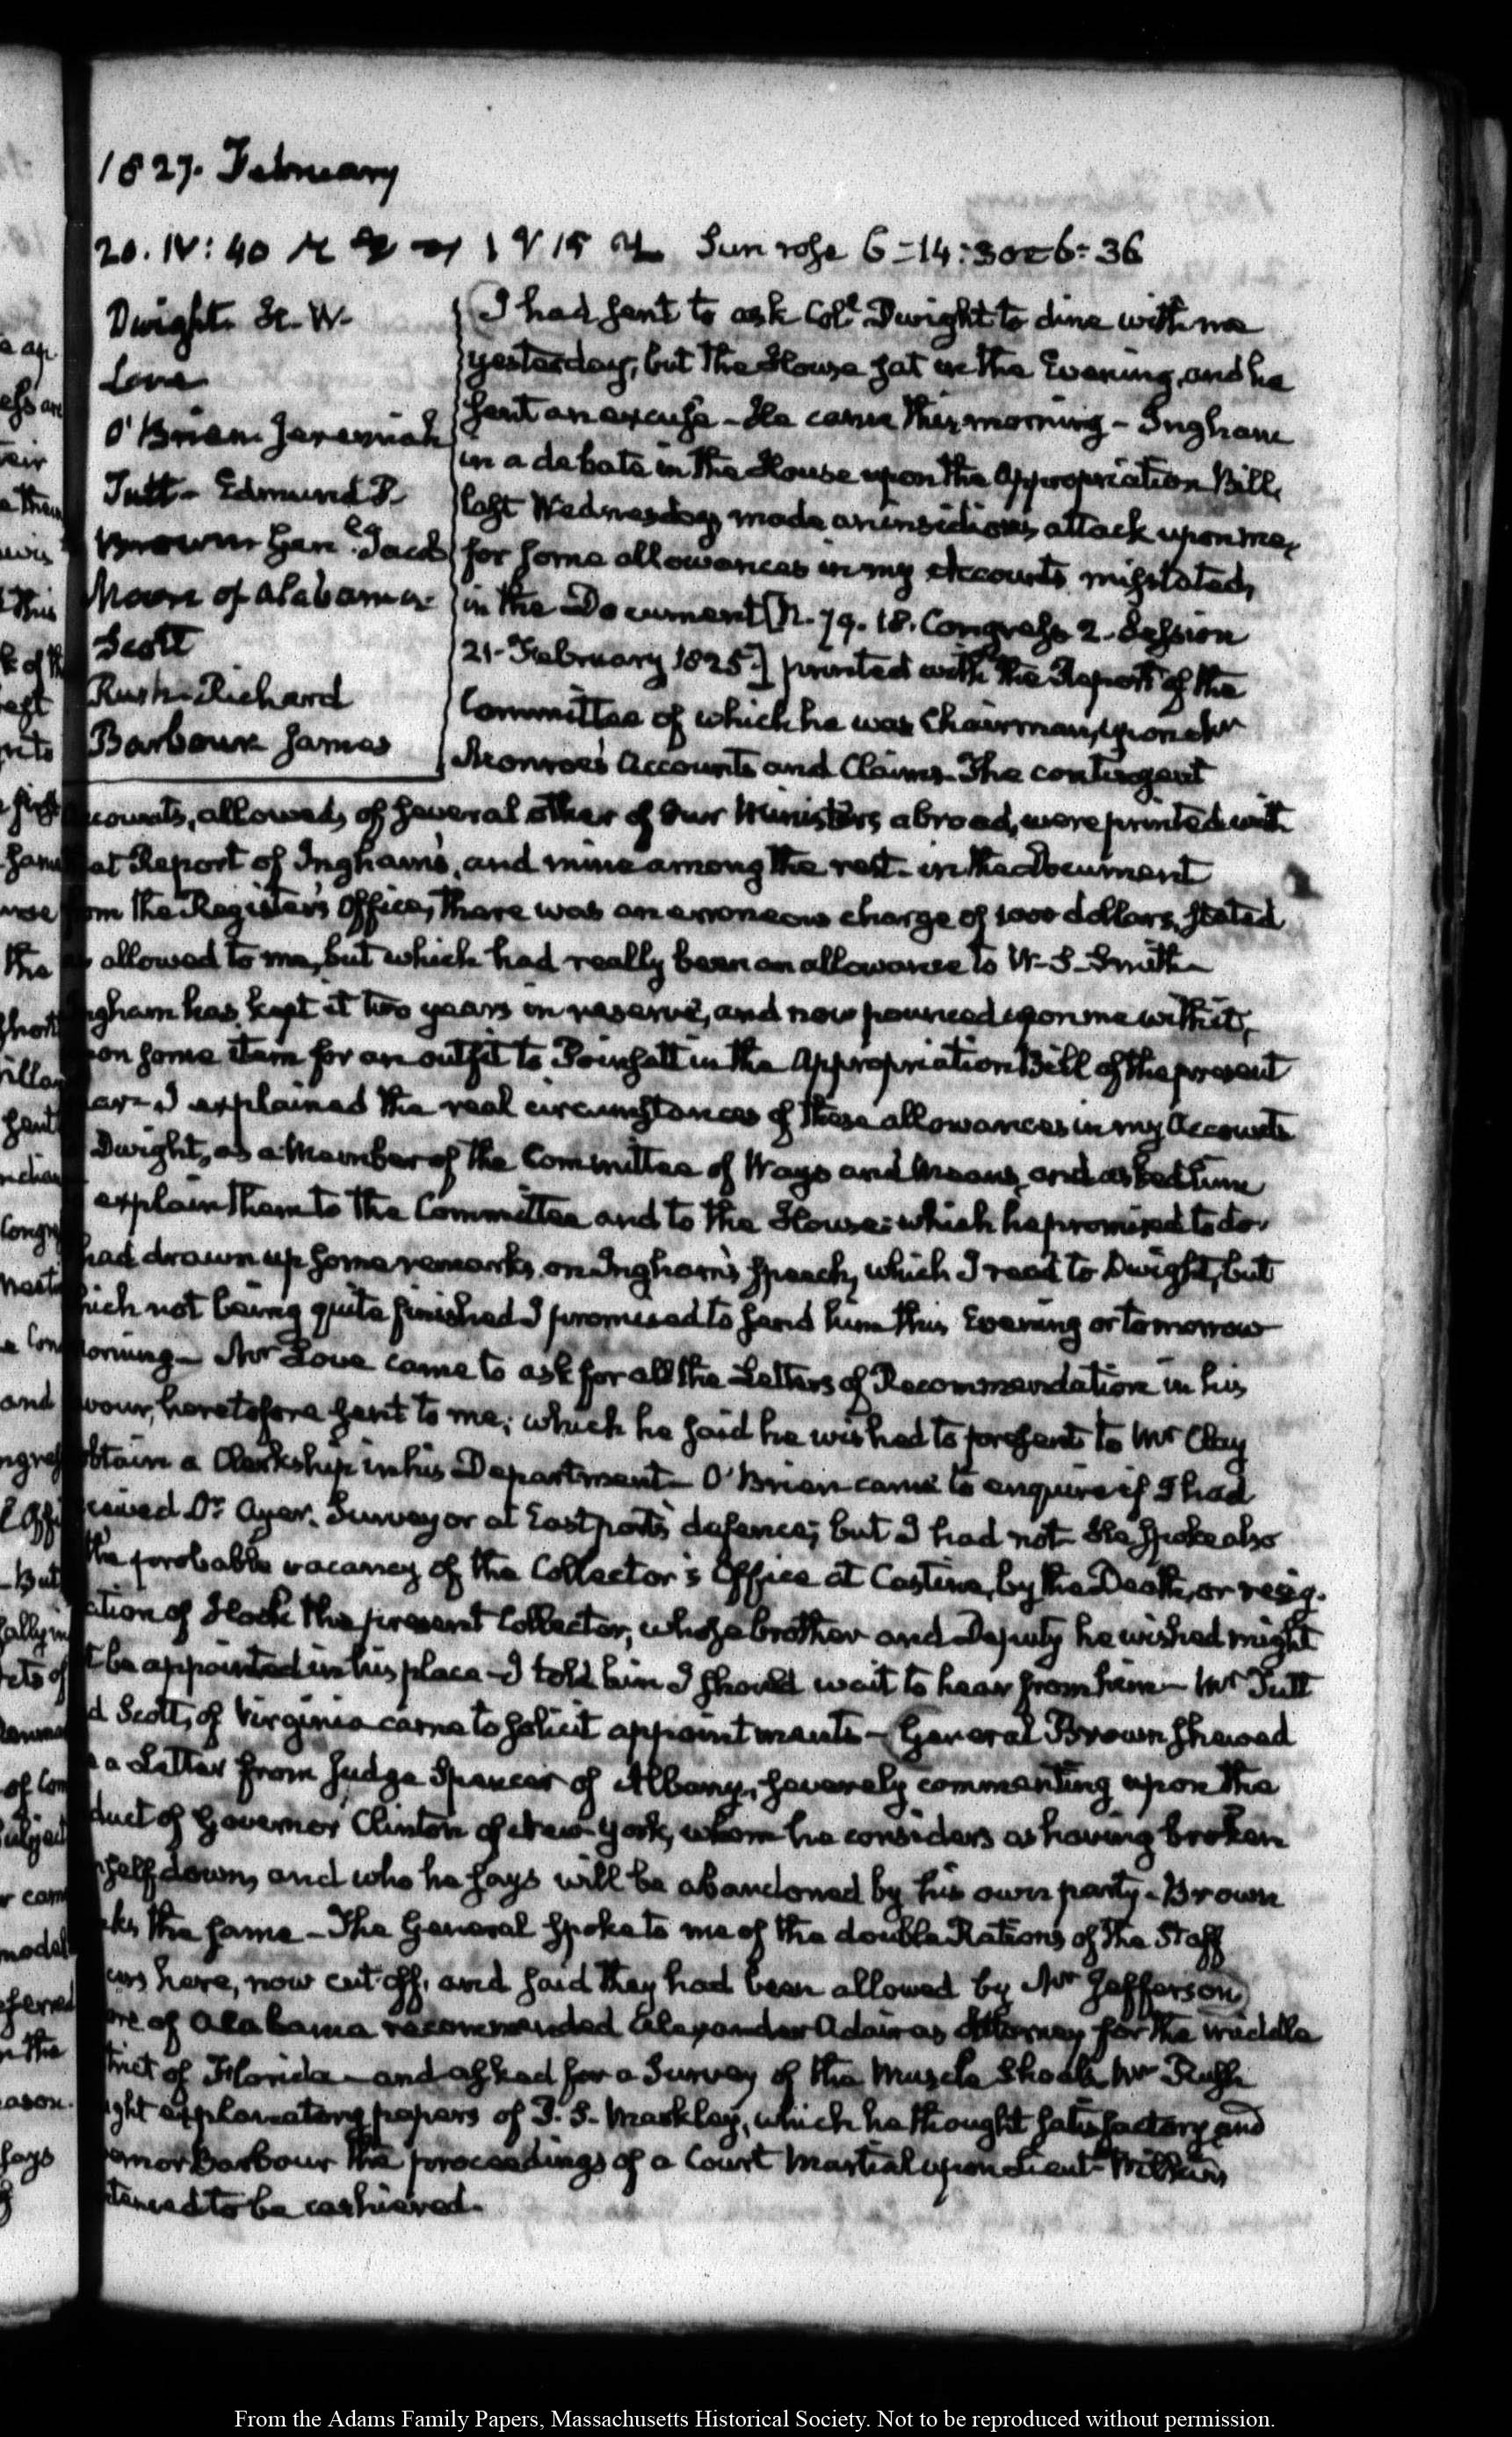 1827. February
20. IV: 40 Sun rose 6-14: set 6-36
Dwight. H. W.
Love
O'Brien. Jeremiah
Tutt- Edmund P.
Brown Genl. Jacob
Moore of Alabama
Scott
Rush- Richard
Barbour James
I had sent to ask Coll. Dwight to dine with me
yesterday, but the House sat in the Evening, and he
sent an excuse- He came this morning- Ingham
in a debate in the House upon the Appropriation Bill,
last Wednesday made an insidious attack upon me,
for some allowances in my Accounts misstated,
in the Document [N. 79. 18. Congress 2. Session
21. February 1825.] printed with the Report of the
Committee of which he was Chairman, upon Mr
Monroe's Accounts and Claims- The contingent
accounts, allowed, of several other of our Ministers abroad, were printed with
at Report of Ingham's, and mine among the rest- in the document
om the Register's Office, there was an erroneous charge of 1000 dollars, stated
as allowed to me, but which had really been an allowance to W. S. Smith-
ngham has kept it two years in reserve, and now pounced upon me with it,
on some item for an outfit to Poinsett in the Appropriation Bill of the present
ear- I explained the real circumstances of these allowances in my Accounts
Dwight, as a Member of the Committee of Ways and Means, and asked him
explain them to the Committee and to the House: which he promised to do-
had drawn up some remarks on Ingham's Speech, which I read to Dwight, but
hich not being quite finished I promised to send him this Evening or tomorrow
orning- Mr Love came to ask for all the Letters of Recommendation in his
vour, heretofore sent to me; which he said he wished to present to Mr Clay
btain a Clerkship in his Department- O'Brien came to enquire if I had
ceived Dr Ayer. Surveyor at Eastport's defence; but I had not- He spoke also
the probable vacancy of the Collector's Office at Castine, by the Death, or resig-
ation of Hook the present Collector, whose brother and Deputy he wished might
t be appointed in his place- I told him I should wait to hear from him- Mr Tutt
d Scott, of Virginia came to solicit appointments- General Brown shewed
a Letter from Judge Spencer of Albany, severely commenting upon the
duct of Governor Clinton of New-York, whom he considers as having broken
self down, and who he says will be abandoned by his own party- Brown
ks the same- The General spoke to me of the double Rations of the Staff
cers here, now cut off, and said they had been allowed by Mr Jefferson
ore of Alabama recommended Alexander Adair as Attorney for the middle
trict of Florida- and asked for a Survey of the Muscle Shoals. Mr Rush
ught explanatory papers of J. S. Markley, which he thought satisfactory and
ernor Barbour the proceedings of a Court Martial upon Lieut-
tenced to be cashiered.
From the Adams Family Papers, Massachusetts Historical Society. Not to be reproduced without permission.